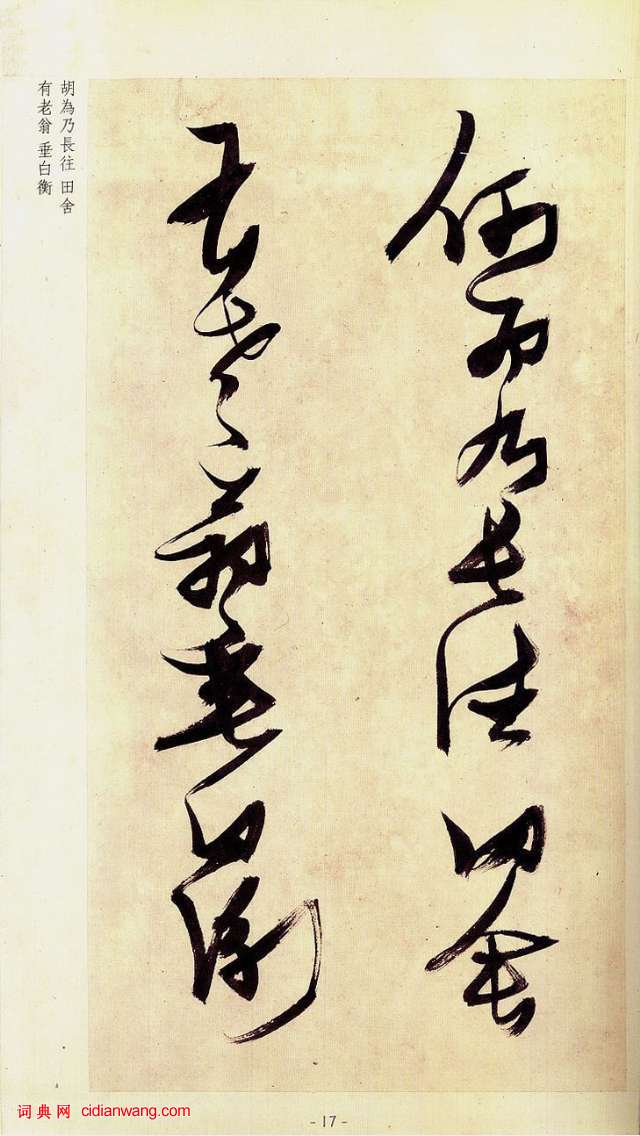 何為乃長往田舍
有老翁垂白衡
胡為乃長往 田舍
有老翁 垂白衡
词典网 cidianwang.com
- 17 -